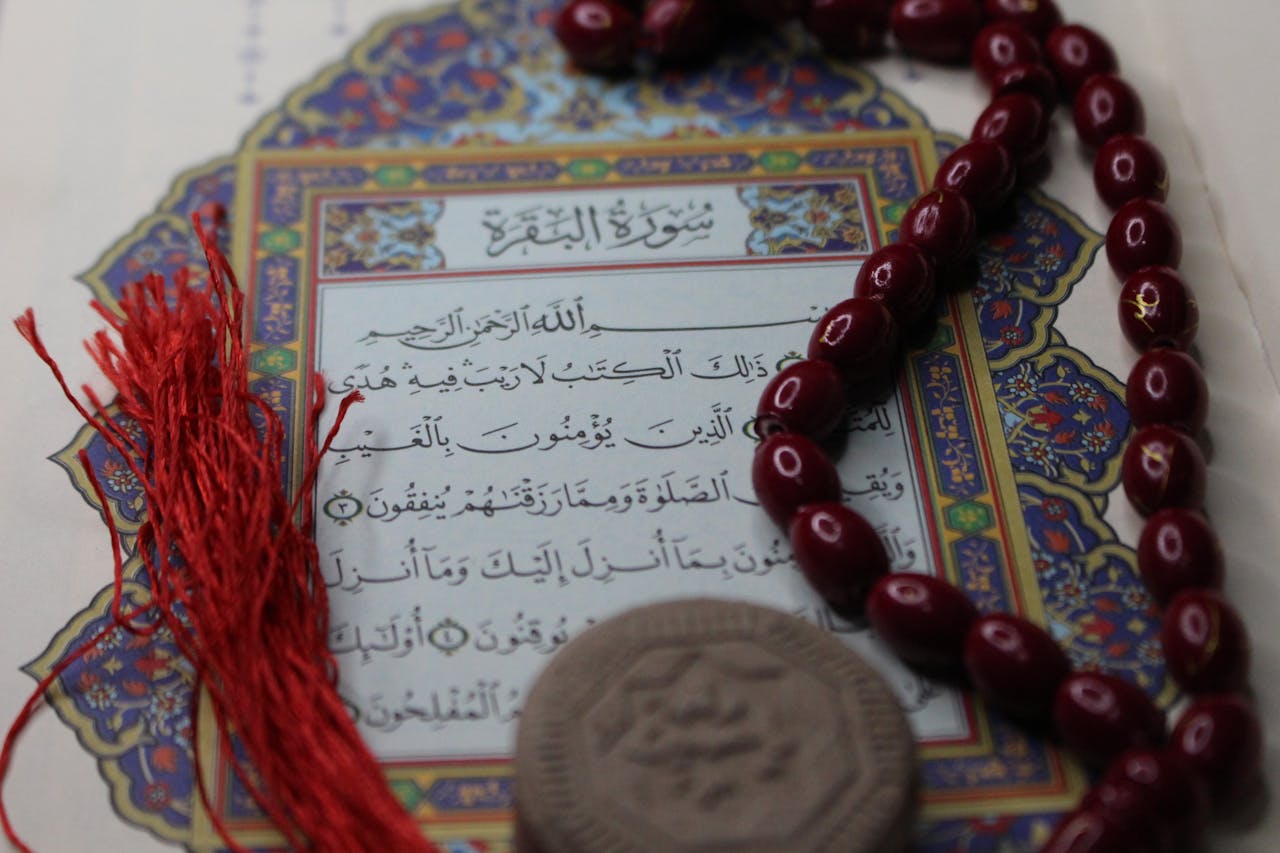 سُورَةُ البَقَرَةِ
بِسْمِ ٱللَّهِ ٱلرَّحْمَٰنِ ٱلرَّحِيمِ
ذَٰلِكَ ٱلْكِتَٰبُ لَا رَيْبَ ۛ فِيهِ ۛ هُدًى
ٱلَّذِينَ يُؤْمِنُونَ بِٱلْغَيْبِ
ٱلصَّلَوٰةَ وَمِمَّا رَزَقْنَٰهُمْ يُنفِقُونَ ٣
بِمَآ أُنزِلَ إِلَيْكَ وَمَآ أُنزِلَ
يُوقِنُونَ ٤ أُو۟لَٰٓئِكَ
ٱلْمُفْلِحُونَ